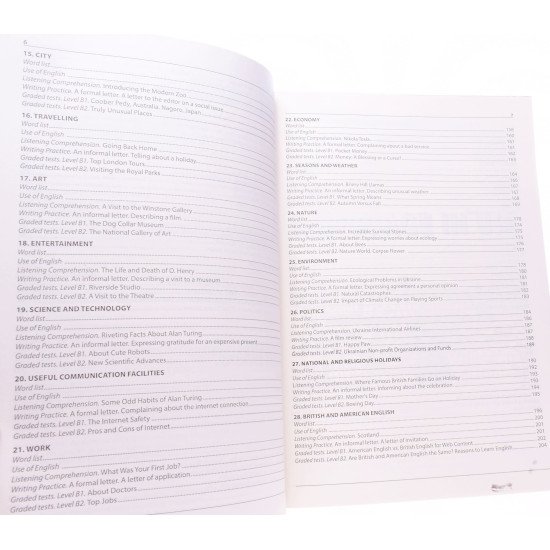 6
15. CITY
Word list
Use of English
Listening Comprehension. Introducing the Modern Zoo
Writing Practice. A formal letter. A letter to the editor on a social issue
Graded tests. Level B1. Coober Pedy, Australia. Nagoro, Japan
Graded tests. Level B2. Truly Unusual Places
16. TRAVELLING
Word list
Use of English
Listening Comprehension. Going Back Home
Writing Practice. An informal letter. Telling about a holiday
Graded tests. Level B1. Top London Tours
Graded tests. Level B2. Visiting the Royal Parks
17. ART
Word list
Use of English
Listening Comprehension. A Visit to the Winstone Gallery
Writing Practice. An informal letter. Describing a film
Graded tests. Level B1. The Dog Collar Museum
Graded tests. Level B2. The National Gallery of Art
18. ENTERTAINMENT
Word list
Use of English
Listening Comprehension. The Life and Death of O. Henry
Writing Practice. An informal letter. Describing a visit to a museum
Graded tests. Level B1. Riverside Studio
Graded tests. Level B2. A Visit to the Theatre
19. SCIENCE AND TECHNOLOGY
Word list
Use of English
Listening Comprehension. Riveting Facts About Alan Turing
Writing Practice. An informal letter. Expressing gratitude for an expensive present
Graded tests. Level B1. About Cute Robots
Graded tests. Level B2. New Scientific Advances
20. USEFUL COMMUNICATION FACILITIES
Word list
Use of English
Listening Comprehension. Some Odd Habits of Alan Turing
Writing Practice. A formal letter. Complaining about the internet connection
Graded tests. Level B1. The Internet Safety
Graded tests. Level B2. Pros and Cons of Internet
21. WORK
Word list
Use of English
Listening Comprehension. What Was Your First Job?
Writing Practice. A formal letter. A letter of application
Graded tests. Level B1. About Doctors
Graded tests. Level B2. Top Jobs
22. ECONOMY
Word list
Use of English
Listening Comprehension. Nikola Tesla
Writing Practice. A formal letter. Complaining about a bad service
Graded tests. Level B1. Pocket Money
Graded tests. Level B2. Money: A Blessing or a Curse?
23. SEASONS AND WEATHER
Word list
Use of English
Listening Comprehension. Briery Hill Llamas
Writing Practice. An informal letter. Describing unusual weather
Graded tests. Level B1. What Spring Means
Graded tests. Level B2. Autumn Versus Fall
24. NATURE
Word list
Use of English
Listening Comprehension. Incredible Survival Stories
Writing Practice. A formal letter. Expressing worries about ecology
Graded tests. Level B1. About Bees
Graded tests. Level B2. Nature World: Corpse Flower
25. ENVIRONMENT
Word list
Use of English
Listening Comprehension. Ecological Problems in Ukraine
Writing Practice. A formal letter. Expressing agreement a personal opinion
Graded tests. Level B1. Natural Catastrophes
Graded tests. Level B2. Impact of Climate Change on Playing Sports
26. POLITICS
Word list
Use of English
Listening Comprehension. Ukraine International Airlines
Writing Practice. A film review
Graded tests. Level B1. House Paw
Graded tests. Level B2. Ukrainian Non-profit Organizations and Funds
27. NATIONAL AND RELIGIOUS HOLIDAYS
Word list
Use of English
Listening Comprehension. Where Famous British Families Go on Holiday
Writing Practice. An informal letter. Informing about the celebration
Graded tests. Level B1. Mother's Day
Graded tests. Level B2. Boxing Day
28. BRITISH AND AMERICAN ENGLISH
Word list
Use of English
Listening Comprehension. Scotland
Writing Practice. An informal letter. A letter of invitation
Graded tests. Level B1. American English vs. British English for Web Content
Graded tests. Level B2. Are British and American English the Same? Reasons to Learn English